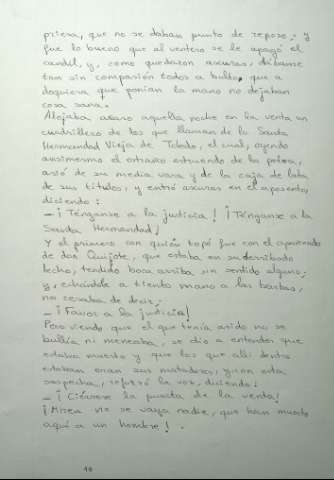 priesa, que no se daban punto de reposo; y
fue lo bueno que al ventero se le apagó el
candil, y, como quedaron ascuras, dábanse
tan sin compasión todos a bulto, que a
doquiera que ponían la mano no dejaban
cosa sana.
Alojaba acaso aquella noche en la venta un
cuadrillero de los que llaman de la Santa
Hermandad Vieja de Toledo, el cual, oyendo
ansimesmo el extraño estruendo de la pelea,
asió de su media vara y de la caja de lata
de sus títulos, y entró ascuras en el aposento,
diciendo:
- ¡Ténganse a la justicia! ¡Ténganse a la
Santa Hermandad!
Y el primero con quien topó fue con el apuñeado
de don Quijote, que estaba en su derribado
lecho, tendido boca arriba sin sentido alguno;
y, echándole a tiento mano a las barbas,
no cesaba de decir:
- ¡Favor a la justicia!
Pero viendo que el que tenía asido no se
bullía ni meneaba, se dio a entender que
estaba muerto y que los que allí dentro
estaban eran sus matadores, y con esta
sospecha, reforzó la voz, diciendo:
- ¡Ciérrese la puerta de la venta!
¡Miren no se vaya nadie, que han muerto
aquí a un hombre!